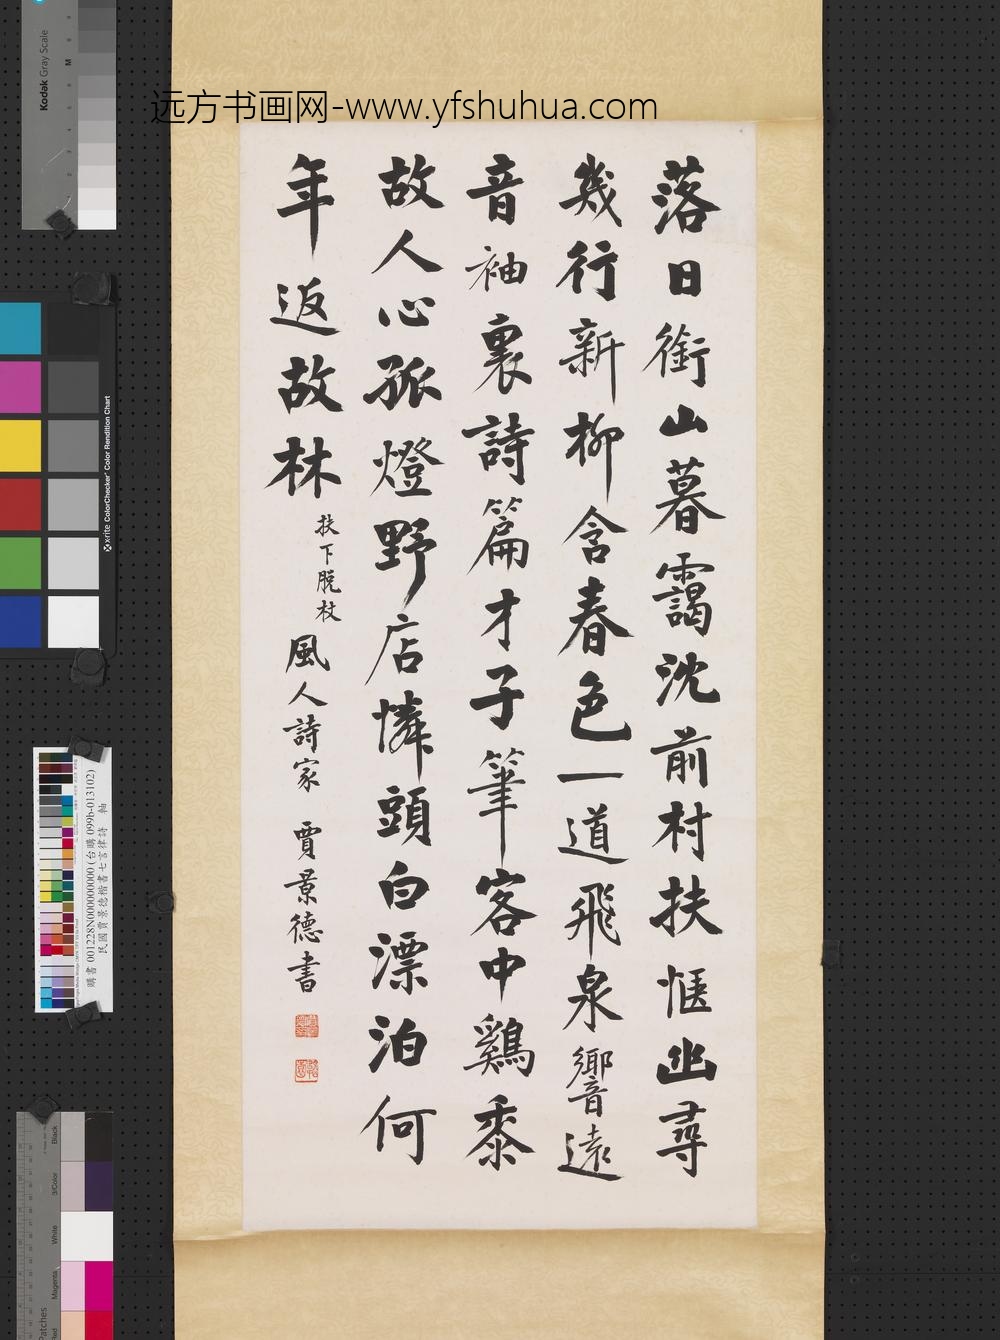 远方书画网-www.yfshuhua.com
落日銜山暮靄沈前村扶愜出尋
幾行新柳含春色一道飛泉響遠
音袖裏詩篇才子筆客中鷄黍
故人心孤燈野店憐頭白漂泊何
年返故林
扶下脱杖
風人詩家 賈景德書
Kodak Gray Scale
x-rite ColorChecker Color Rendition Chart
購書 001228N000000000 (台購 099b-013102)
民國賈景德楷書七言律詩 軸
Black
3/Color
White
Magenta
Patches